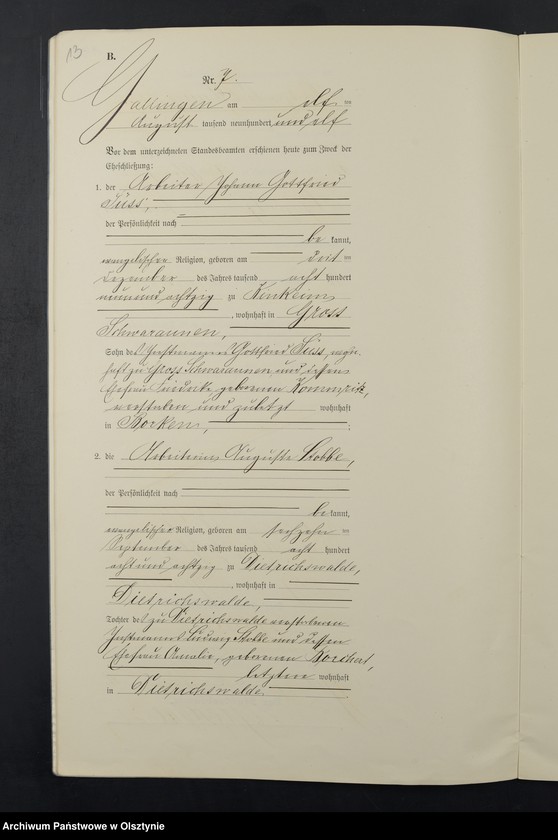 13
B.
Nr. 7.
Gallingen am elf =
August tausend neunhundert und elf
Vor dem unterzeichneten Standesbeamten erschienen heute zum Zweck der
Eheschließung:
1. der Arbeiter Johann Gottfried
Süss,
der Persönlichkeit nach
be kannt,
evangelischer Religion, geboren am
Dezember des Jahres tausend acht hundert
neunundachtzig zu
, wohnhaft in Gross
Schwaraunen,
Sohn des Instmanns Gottfried Süss, wohn-
haft zu Gross Schwaraunen und dessen
Ehefrau geborenen
verstorben und zuletzt wohnhaft
in Borken, ;
2. die Arbeiterin Auguste Stobbe,
der Persönlichkeit nach
be kannt,
evangelischer Religion, geboren am sechzehn =
September des Jahres tausend acht hundert
achtundachtzig zu Dietrichswalde,
, wohnhaft in
Dietrichswalde,
Tochter des zu Dietrichswalde verstorbenen
Instmanns Ludwig Stobbe und dessen
Ehefrau Amalie, geborenen
letztere wohnhaft
in Dietrichswalde.
Archiwum Państwowe w Olsztynie